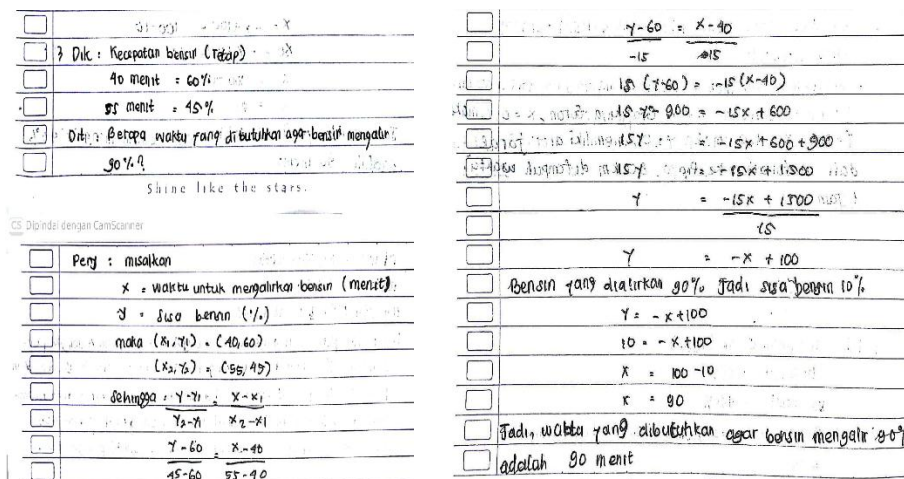 3 Dik : Kecepatan bensin (Tetap)
40 menit = 60%
55 menit = 45%
Dit : Berapa waktu yang dibutuhkan agar bensin mengalir
90%?
Shine like the stars.
CS Dipindai dengan CamScanner
Peny : misalkan
x = waktu untuk mengalirkan bensin (menit)
y = sisa bensin (%)
maka (x₁, y₁) = (40,60)
(x₂, y₂) = (55,45)
Sehingga = y-y₁ = x-x₁
y₂-y₁ x₂-x₁
y-60 = x-40
45-60 55-40
y-60 = x-40
-15 15
15 (y-60) = -15 (x-40)
15y - 900 = -15x + 600
15y = -15x + 600 + 900
15y = -15x + 1500
y = -15x + 1500
15
y = -x + 100
Bensin yang dialirkan 90% Jadi sisa bensin 10%
y = -x + 100
10 = -x + 100
x = 100 - 10
x = 90
Jadi, waktu yang dibutuhkan agar bensin mengalir 90%
adalah 90 menit